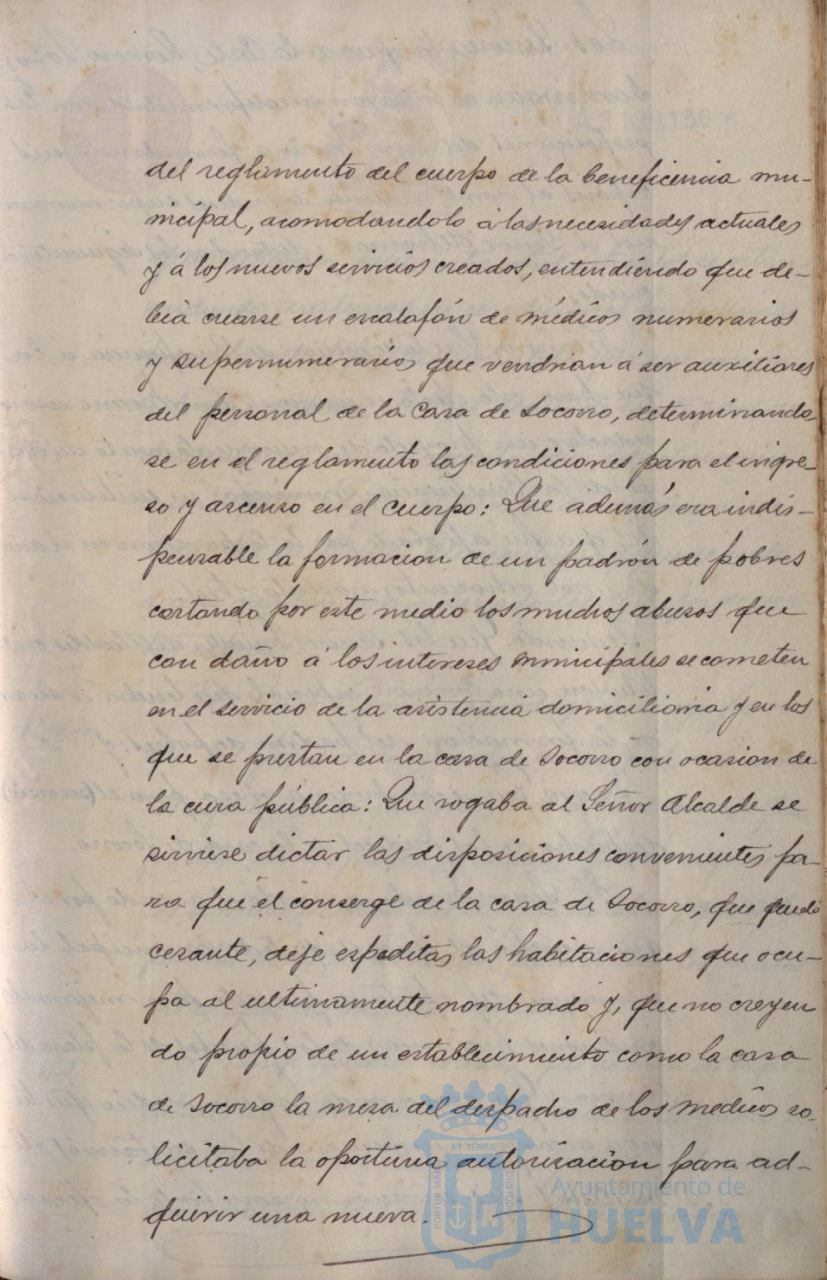 del reglamento del cuerpo de la beneficencia mu-
nicipal, acomodandolo á las necesidades actuales
y á los nuevos servicios creados, entendiendo que de-
bia crearse un escalafón de médicos numerarios
y supernumerarios que vendrian á ser auxiliares
del personal de la Casa de Socorro, determinando
se en el reglamento las condiciones para el ingre-
so y ascenso en el cuerpo: Que además era indis-
pensable la formacion de un padrón de pobres
cortando por este medio los muchos abusos que
con daño á los intereses municipales se cometen
en el servicio de la asistencia domiciliaria y en los
que se prestan en la casa de Socorro con ocasion de
la cura pública: Que rogaba al Señor Alcalde se
sirviese dictar las disposiciones convenientes pa-
ra que el conserge de la casa de Socorro, que quedó
cesante, deje espeditas las habitaciones que ocu-
pa al ultimamente nombrado y, que no creyen
do propio de un establecimiento como la casa
de Socorro la mesa del despacho de los medicos so-
licitaba la oportuna autorizacion para ad-
quirir una nueva.
ET TERRA
Ayuntamiento de
HUELVA